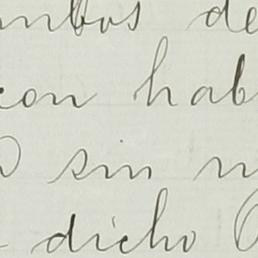 mbos de
con hab
sin n
dicho